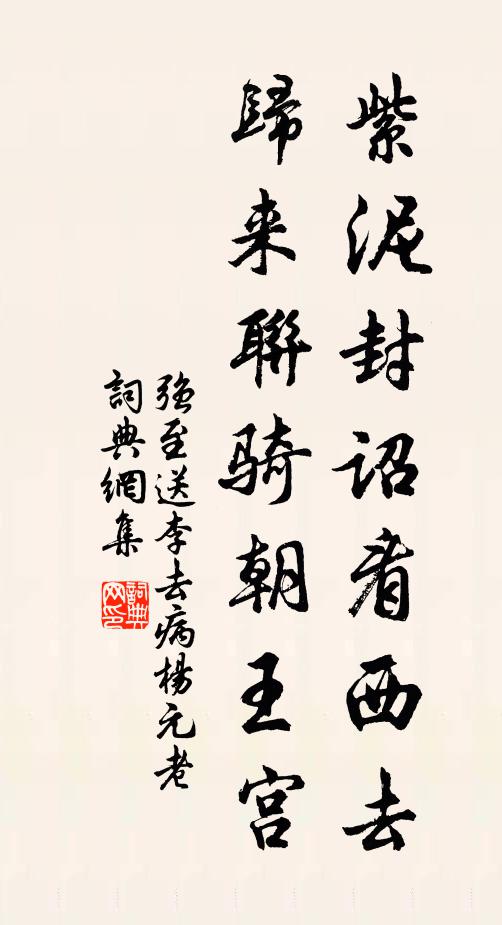 紫泥封诏看西去
歸来聯骑朝王宫
强至送李去病楊元老
詞典網集
詞典网印